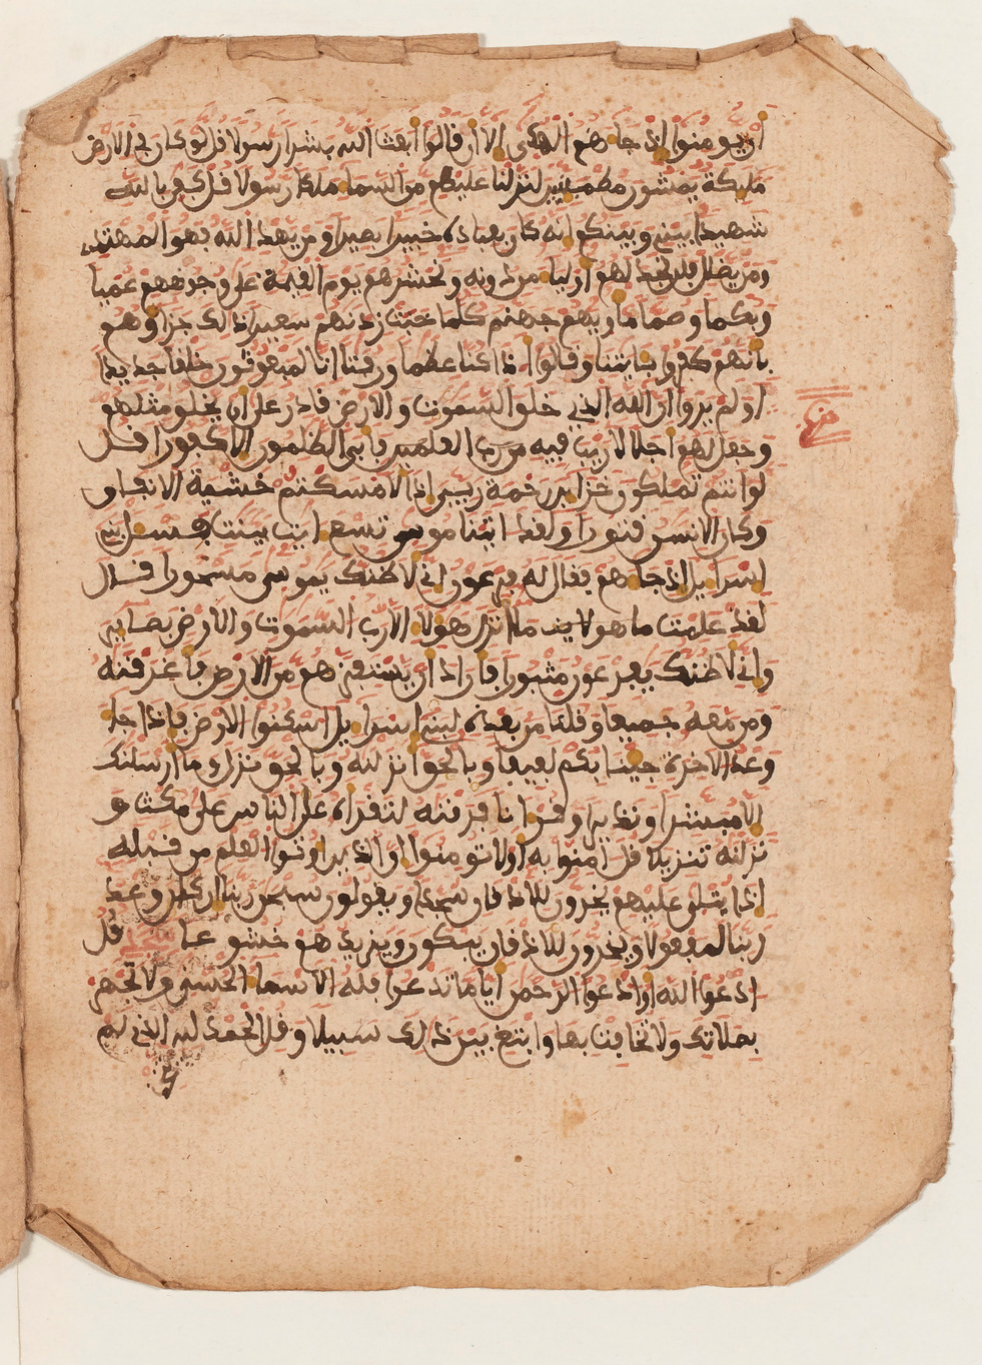 ان يومنوا اذ جاهم الهدى الا ان قالوا ابعث الله بشرا رسولا قل لو كان في الارض
مليكة يمشون مطمينين لنزلنا عليهم من السما ملكا رسولا قل كفى بالله
شهيدا بيني وبينكم انه كان بعباده خبيرا بصيرا ومن يهد الله فهو المهتد
ومن يضلل فلن تجد لهم اوليا من دونه ونحشرهم يوم القيمة على وجوههم عميا
وبكما وصما ماويهم جهنم كلما خبت زدنهم سعيرا ذلك جزاوهم
بانهم كفروا بايتنا وقالوا اذا كنا عظما ورفتا انا لمبعوثون خلقا جديدا
اولم يروا ان الله الذي خلق السموت والارض قادر على ان يخلق مثلهم
وجعل لهم اجلا لا ريب فيه فابى الظلمون الا كفورا قل
لو انتم تملكون خزاين رحمة ربي اذا لامسكتم خشية الانفاق
وكان الانسن قتورا ولقد اتينا موسى تسع ايت بينت فسل بني
اسرايل اذ جاهم فقال له فرعون اني لاظنك يموسى مسحورا قال
لقد علمت ما انزل هولا الا رب السموت والارض بصاير
واني لاظنك يفرعون مثبورا فاراد ان يستفزهم من الارض فاغرقنه
ومن معه جميعا وقلنا من بعده لبني اسرايل اسكنوا الارض فاذا جا
وعد الاخرة جينا بكم لفيفا وبالحق انزلنه وبالحق نزل وما ارسلنك
الا مبشرا ونذيرا وقرانا فرقنه لتقراه على الناس على مكث و
نزلنه تنزيلا قل امنوا به اولا تومنوا ان الذين اوتوا العلم من قبله
اذا يتلى عليهم يخرون للاذقان سجدا ويقولون سبحن ربنا ان كان وعد
ربنا لمفعولا ويخرون للاذقان يبكون ويزيدهم خشوعا قل
ادعوا الله او ادعوا الرحمن ايا ما تدعوا فله الاسما الحسنى ولا تجهر
بصلاتك ولا تخافت بها وابتغ بين ذلك سبيلا وقل الحمد لله الذي لم